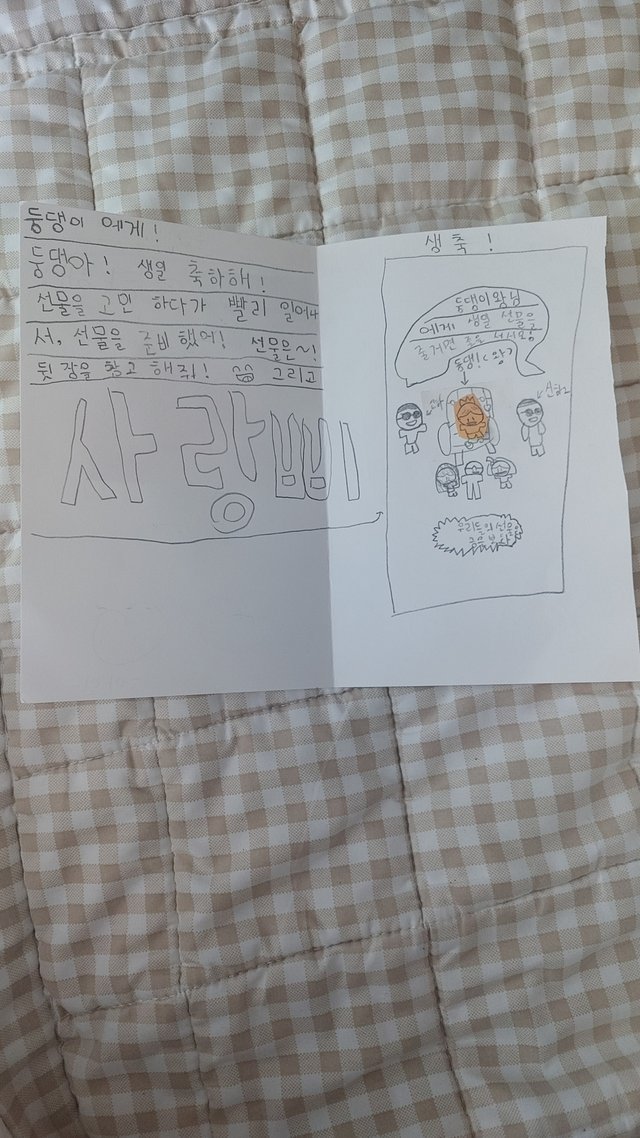 둥댕이 에게!
둥댕아! 생일 축하해!
선물을 고민 하다가 빨리 일어나
서, 선물을 준비 했어! 선물은~!
뒷 장을 참고 해줘! 그리고
사랑삐
생축!
둥댕이왕님
에게 생일 선물을
줄거면 줄을 서시오!
둥댕!
신하2
우리들의 선물